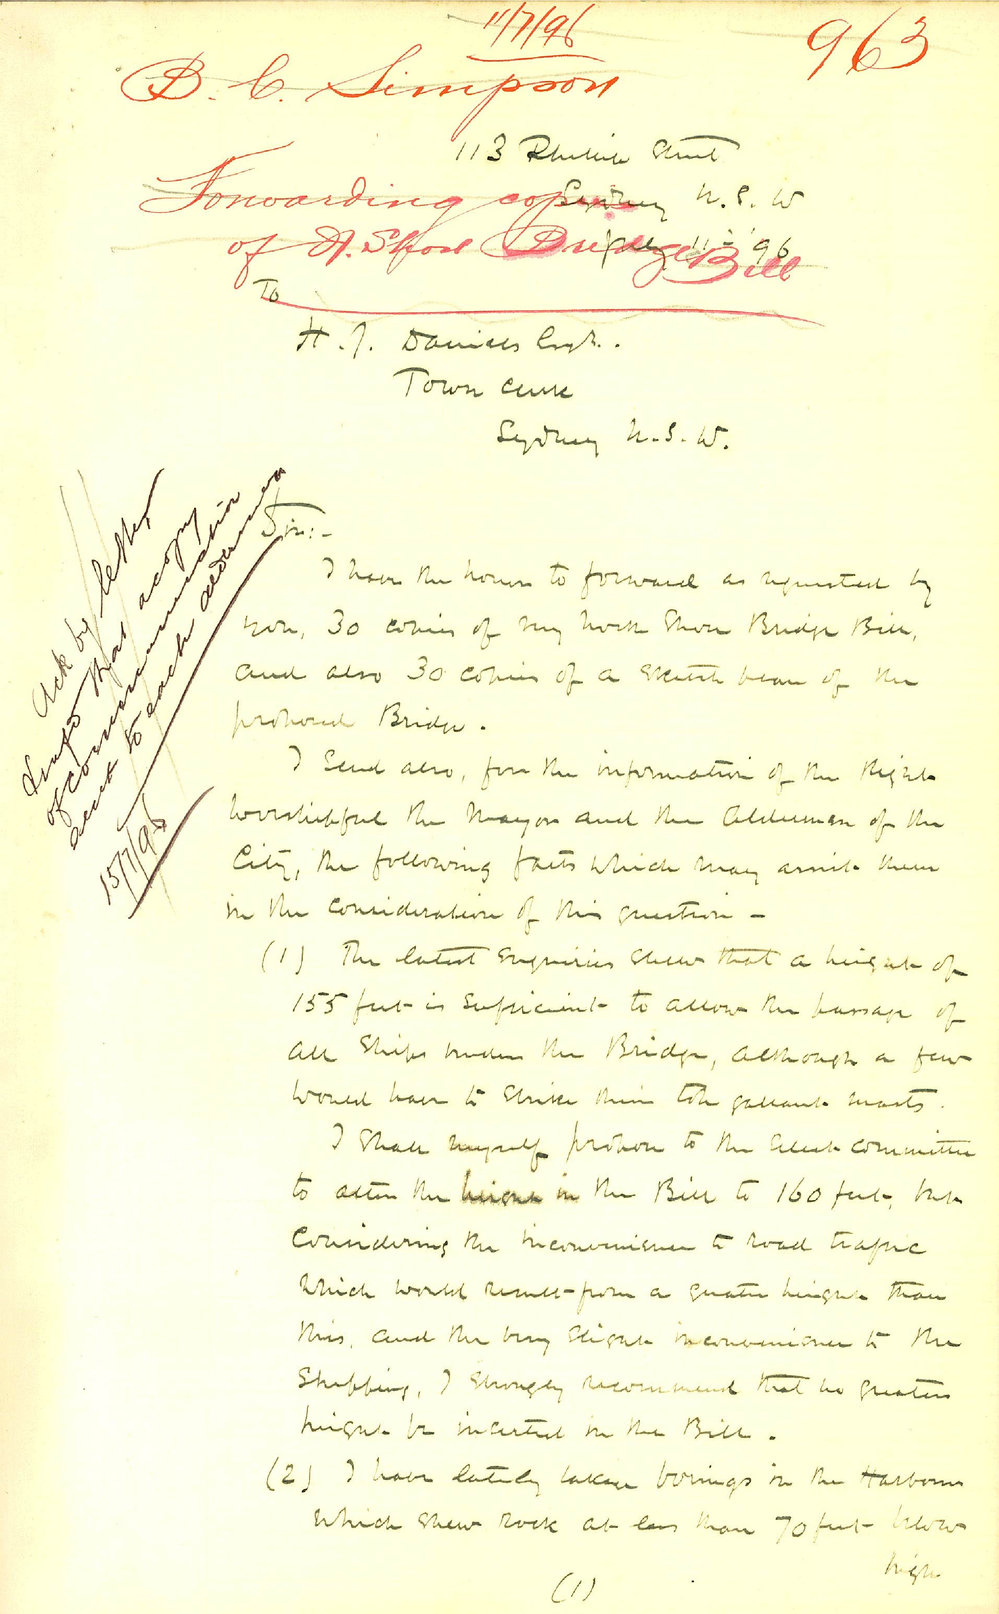 11/7/96
963
B. C. Simpson
113 Phillip Street
Forwarding copies
Sydney N. S. W
of N. Shore Bridge Bill
July 11th '96
To
H. J. Daniels Esqr.
Town Clerk
Sydney N. S. W.
Sir:-
I have the honor to forward as requested by
you, 30 copies of my North Shore Bridge Bill,
and also 30 copies of a sketch plan of the
proposed Bridge.
I send also, for the information of the Right
Worshipful the Mayor and the Aldermen of the
City, the following facts which may assist them
in the consideration of this question -
(1) The latest enquiries shew that a height of
155 feet is sufficient to allow the passage of
all ships under the Bridge, although a few
would have to strike their top gallant masts.
I shall myself propose to the select committee
to alter the height in the Bill to 160 feet, but
considering the inconvenience to road traffic
which would result from a greater height than
this, and the very slight inconvenience to the
shipping, I strongly recommend that no greater
height be inserted in the Bill.
(2) I have lately taken borings in the Harbour
which shew rock at less than 70 feet below
high
(1)
Ack by letter
that a copy
of communication
sent to each alderman
15/7/96